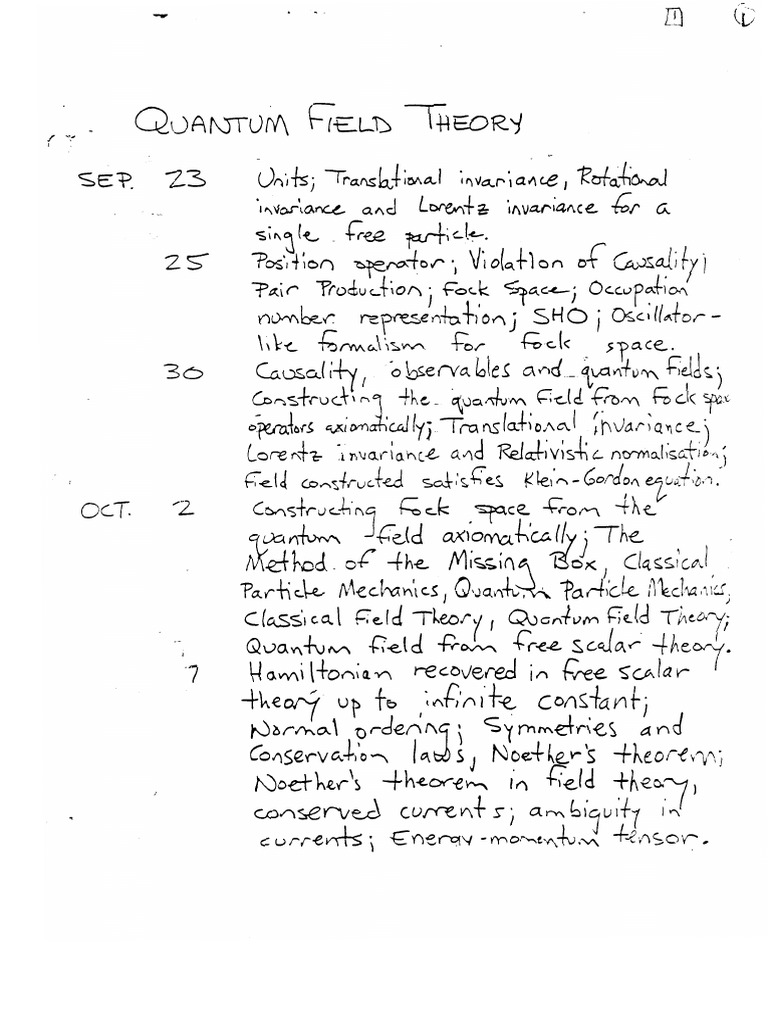 1 1
QUANTUM FIELD THEORY
SEP. 23 Units; Translational invariance, Rotational
invariance and Lorentz invariance for a
single free particle.
25 Position operator; Violation of Causality;
Pair Production; Fock Space; Occupation
number representation; SHO; Oscillator-
like formalism for fock space.
30 Causality, observables and quantum fields;
Constructing the quantum field from Fock space
operators axiomatically; Translational invariance;
Lorentz invariance and Relativistic normalisation;
field constructed satisfies Klein-Gordon equation.
OCT. 2 Constructing Fock space from the
quantum field axiomatically; The
Method of the Missing Box, Classical
Particle Mechanics, Quantum Particle Mechanics,
Classical Field Theory, Quantum Field Theory;
Quantum field from free scalar theory.
7 Hamiltonian recovered in free scalar
theory up to infinite constant;
Normal ordering; Symmetries and
Conservation laws, Noether's theorem;
Noether's theorem in field theory,
conserved currents; ambiguity in
currents; Energy-momentum tensor.